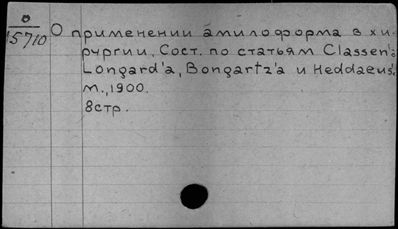 О
15710
О применении амилоформа в хи-
рургии. Сост. по статьям Classen'a
Longard'a, Bongartz'a и Heddaeus'
М., 1900.
8 стр.